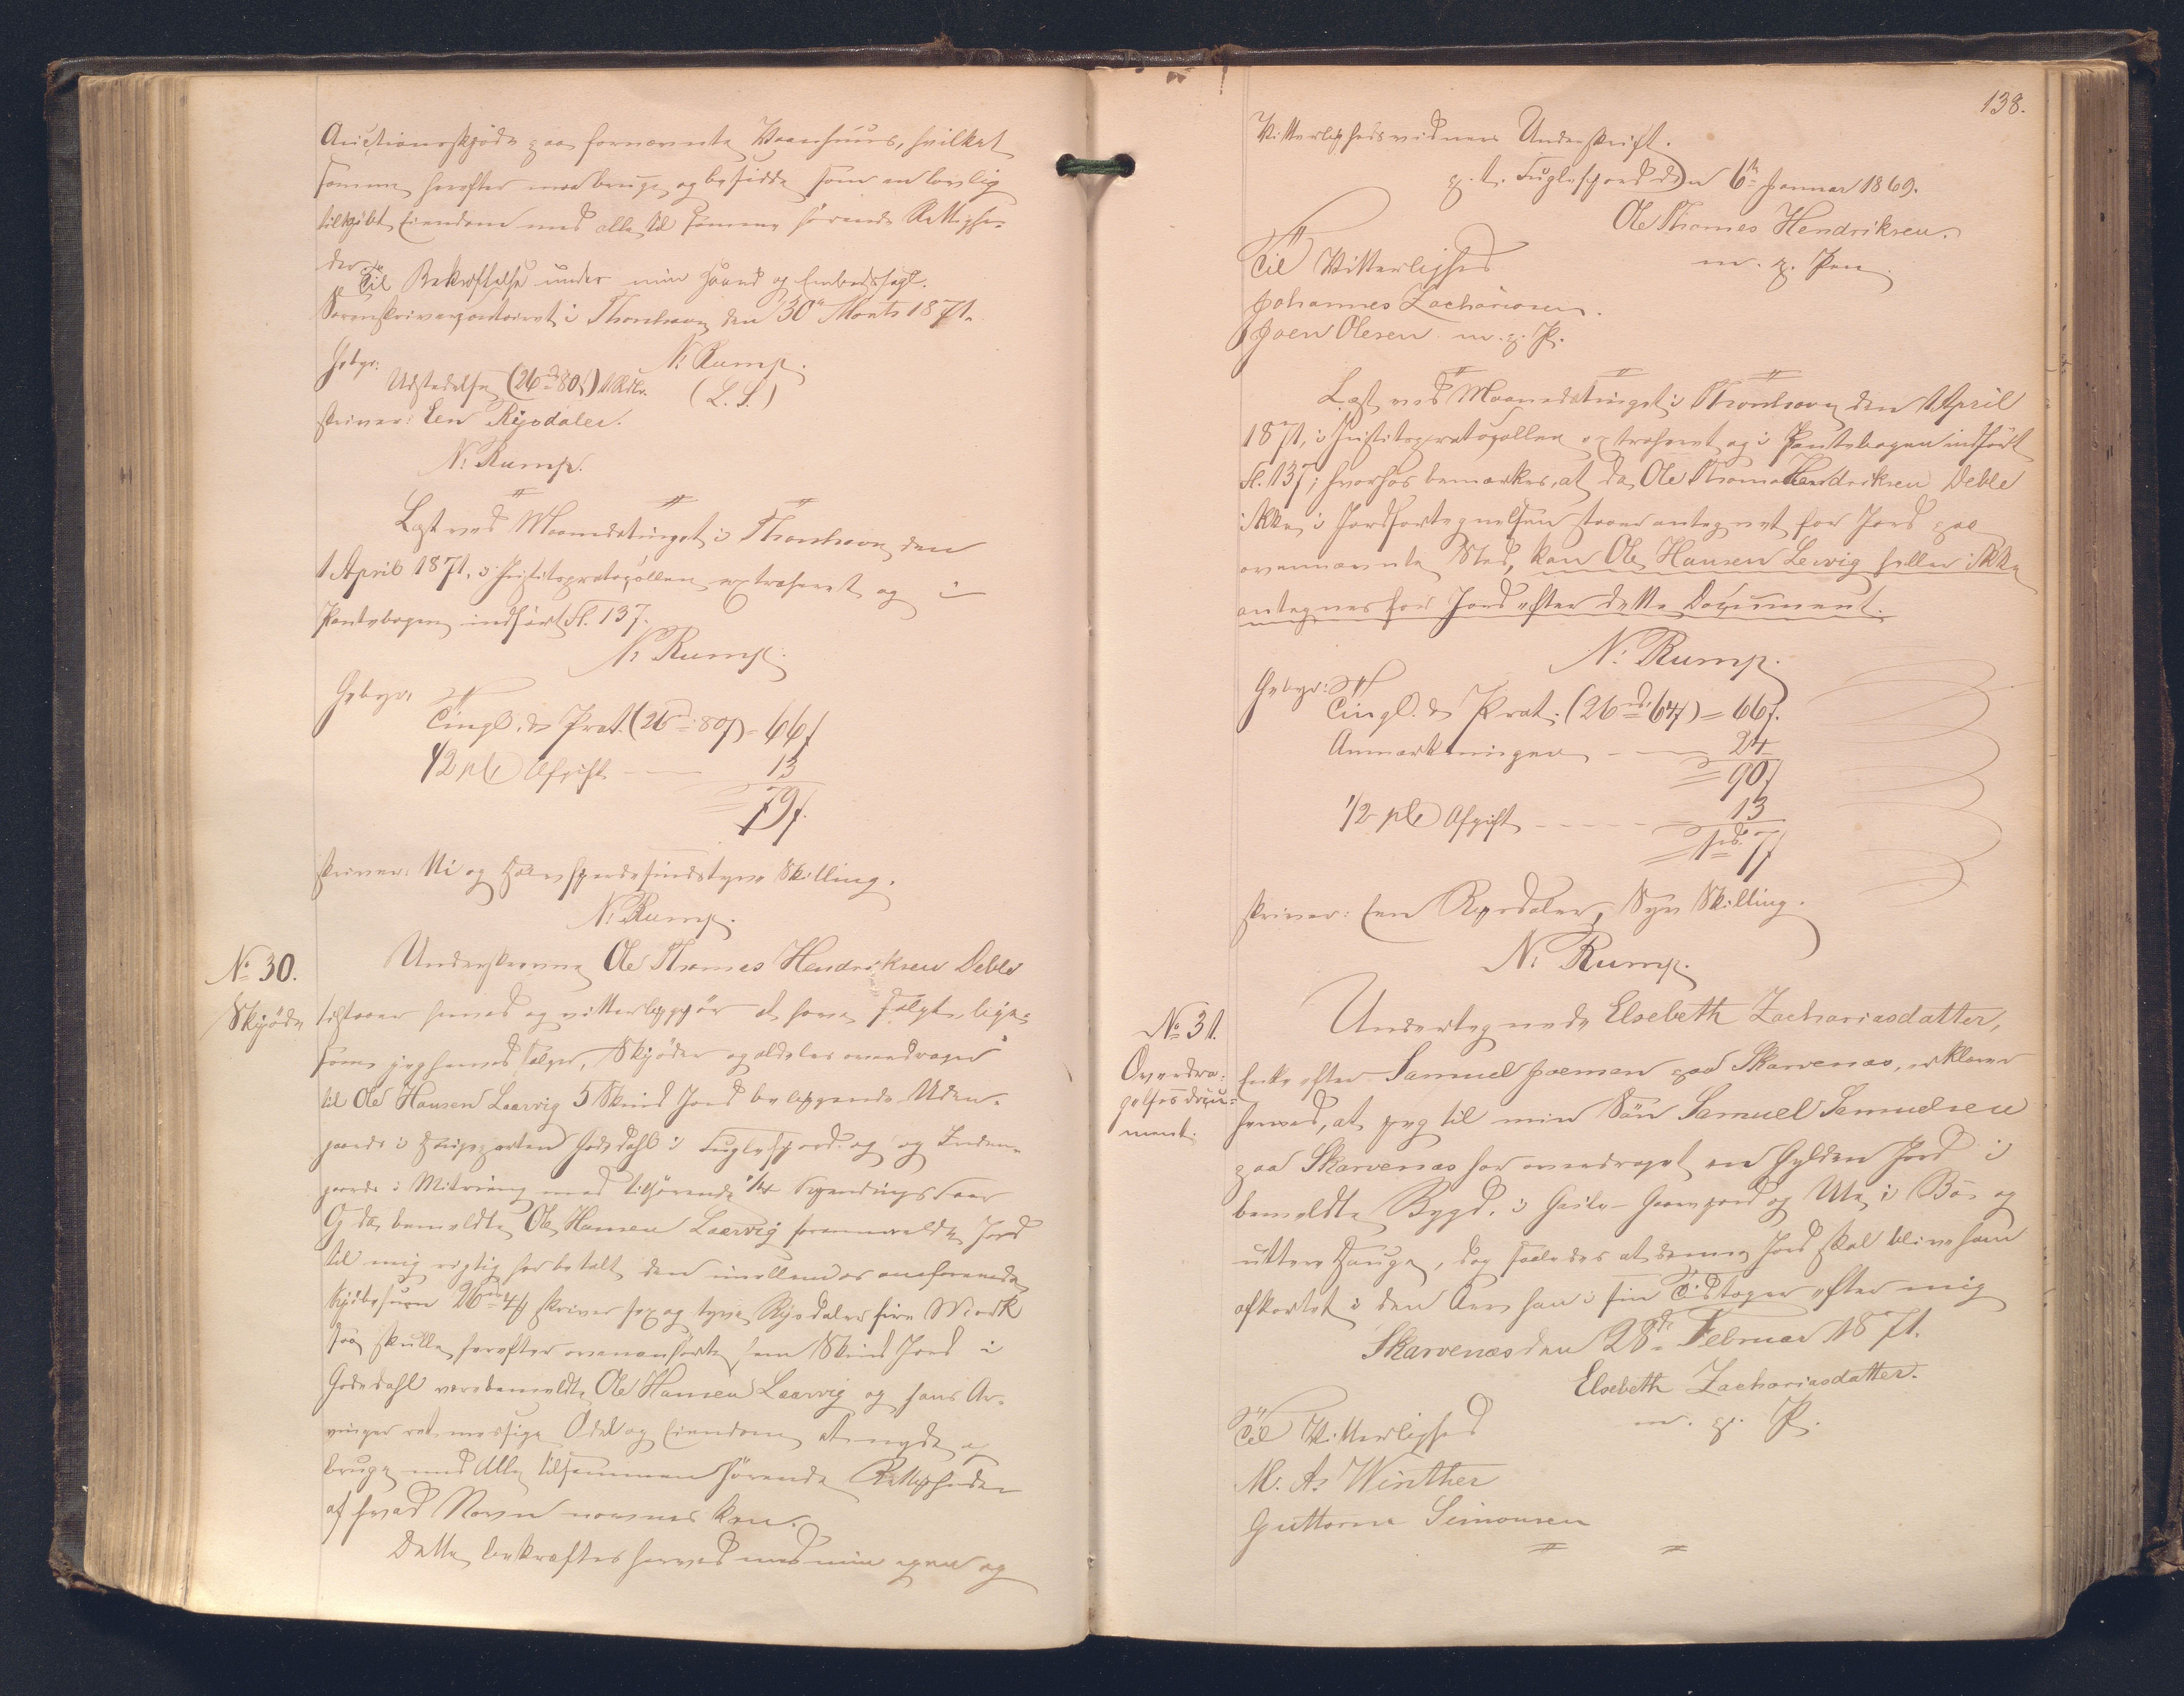 Auctionsskjøde paa fornævnte Vaanhuus, hvilket
samme herefter maa bruge og besidde som en lovlig
tilkjøbt Eiendom med alle til samme hørende Rettighe-
der.
Til Bekræftelse under min Haand og Embedssegl.
Sorenskrivercontoiret i Thorshavn den 30te Marts 1871.
N. Rump.
(L. S.)
Gebyr:
Udstedelse (26rd 80s) 1 Rdlr.
skriver: Een Rigsdaler.
N. Rump.
Læst ved Maanedstinget i Thorshavn den
1 April 1871, i Justitsprotocollen extraheret og i
Pantebogen indført Fl. 137.
N. Rump.
Gebyr:
Tingl. & Prot. (26rd 80s) = 66s
1/2 pCt Afgift — 13
79s.
skriver: Ni og Halvfjerdesindstyve Skilling.
N. Rump.
No 30.
Skjøde
Underskrevne Ole Thomes Hendriksen Deble
tilstaaer herved og vitterliggjør at have solgt, lige-
som jeg herved sælger, Skjøder og aldeles overdrager
til Ole Hansen Laarvig 5 Skind Jord beliggende Uden-
gaards i Haugeparten Godedahl i Fuglefjord og og Inden-
gaards i Mitvæng med tilhørende 1/4
Og da bemeldte Ole Hansen Laarvig foranmeldte Jord
til mig rigtig har betalt den imellem os omforenede
Kjøbesum 26rd 4 skriver sex og tyve Rigsdaler fire Mark
saa skulle herefter ovenanførte fem Skind Jord i
Godedahl være bemeldte Ole Hansen Laarvig og hans Ar-
vinger retmæssige Odel og Eiendom at nyde og
bruge med alle tilsammen hørende Rettigheder
af hvad Navn nævnes kan.
Dette bekræftes herved med min egen og
138.
Vitterlighedsvidners Underskrift.
p. t. Fuglefjord den 6te Januar 1869.
Ole Thomes Hendriksen.
m. p. Pen.
Til Vitterlighed
Johannes Zachariasen.
Joen Olesen m. p. P.
Læst ved Maanedstinget i Thorshavn den 1 April
1871, i Justitsprotocollen extraheret og i Pantebogen indført
Fl. 137; hvorhos bemærkes, at da Ole Thomes Hendriksen Deble
ikke i Jordfortegnelsen staaer antegnet for Jord paa
ovennævnte Sted, kan Ole Hansen Lervig heller ikke
antegnes for Jord efter dette Document.
N. Rump.
Gebyr:
Tingl. & Prot. (26rd 64s) = 66s.
Anmærkningen — 24
90s
1/2 pCt Afgift — 13
1rd 7s
skriver: Een Rigsdaler, Syv Skilling.
N. Rump.
No 31.
Overdra-
gelsesdocu-
ment.
Undertegnede Elsebeth Zachariasdatter,
Enke efter Samuel Joensen paa Skarvenæs, erklærer
herved, at jeg til min Søn Samuel Samuelsen
paa Skarvenæs har overdraget en Gylden Jord i
bemeldte Bygd, i og Ute i Bø og
uttere Hauge, dog saaledes at denne Jord skal blive ham
afkortet i den Arv han i sin Tid tager efter mig
Skarvenæs den 28de Februar 1871.
Elsebeth Zachariasdatter.
m. p. P.
Til Vitterlighed
M. A. Winther
Guttorm Simonsen